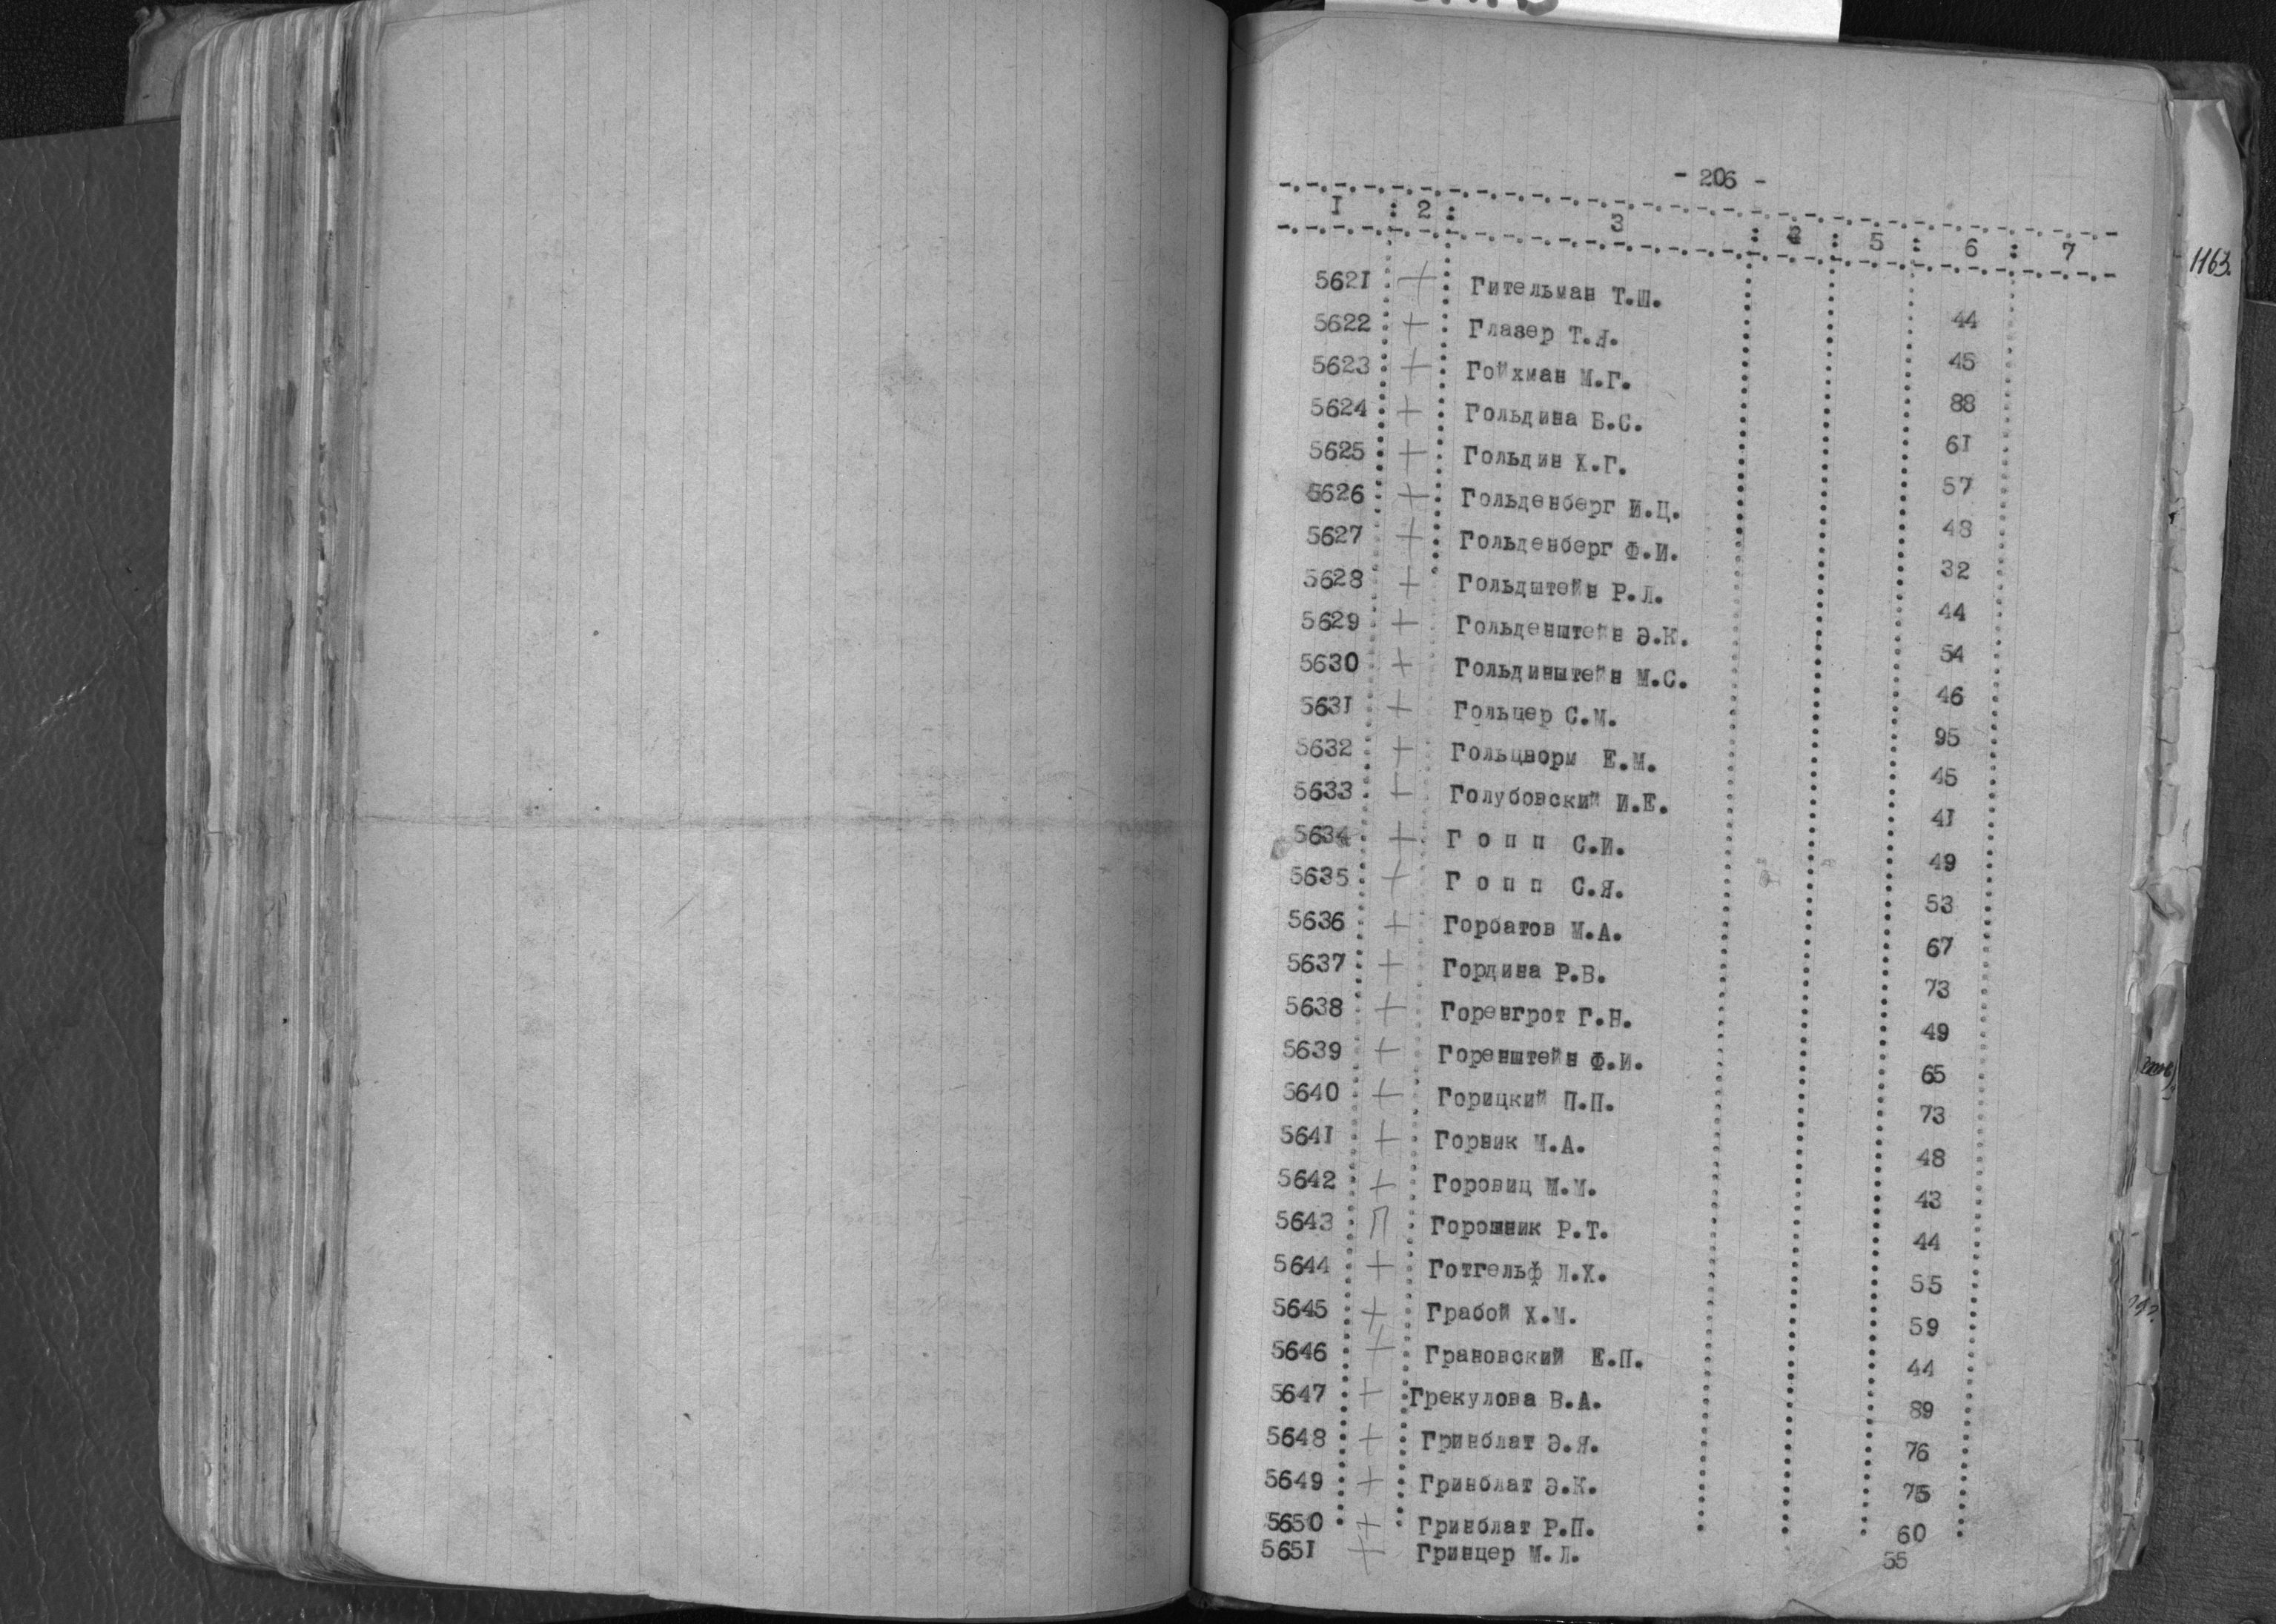 - 206 -
I : 2 : 3 : 4 : 5 : 6 : 7
1163.
5621 + Гительман Т.Ш. 44
5622 + Глазер Т.Я. 45
5623 + Гойхман М.Г. 88
5624 + Гольдина Б.С. 61
5625 + Гольдин Х.Г. 57
5626 + Гольденберг И.Ц. 48
5627 + Гольденберг Ф.И. 32
5628 + Гольдштейн Р.Л. 44
5629 + Гольденштейн Э.К. 54
5630 + Гольдинштейн М.С. 46
5631 + Гольцер С.М. 95
5632 + Гольцворм Е.М. 45
5633 + Голубовский И.Е. 41
5634 + Г о п п С.И. 49
5635 + Г о п п С.Я. 53
5636 + Горбатов М.А. 67
5637 + Гордина Р.В. 73
5638 + Горенгрот Г.Н. 49
5639 + Горенштейн Ф.И. 65
5640 + Горицкий П.П. 73
5641 + Горник М.А. 48
5642 + Горовиц М.М. 43
5643 П Горошник Р.Т. 44
5644 + Готгельф Л.Х. 55
5645 + Грабой Х.М. 59
5646 + Грановский Е.П. 44
5647 + Грекулова В.А. 89
5648 + Гринблат Э.Я. 76
5649 + Гринблат Э.К. 75
5650 + Гринблат Р.П. 60
5651 + Гринцер М.Л. 55